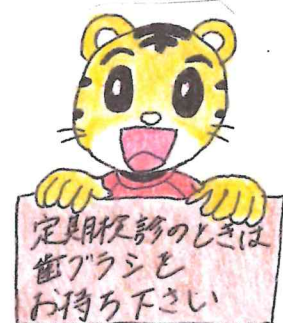 定期検診のときは
歯ブラシを
お持ち下さい